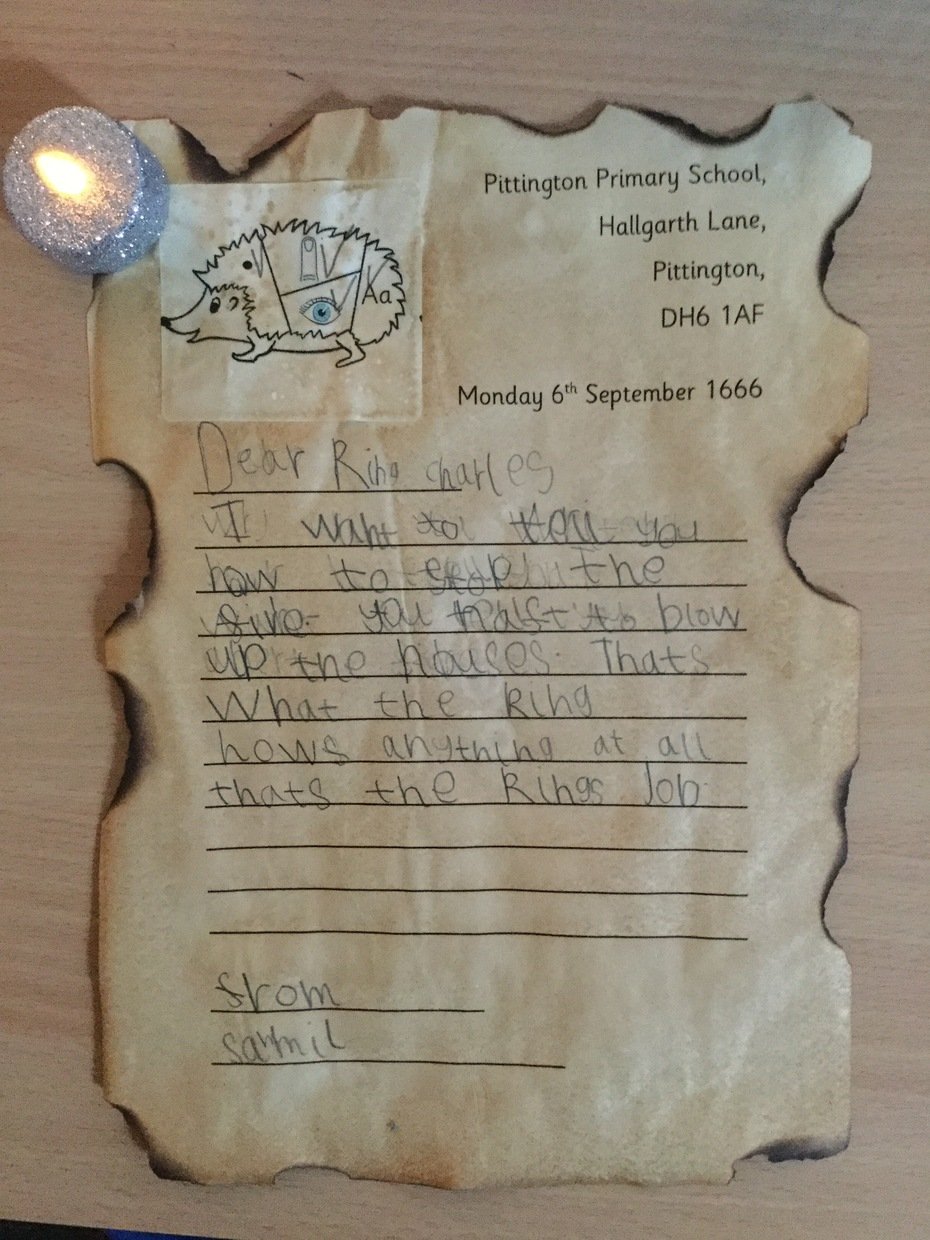 Pittington Primary School,
Hallgarth Lane,
Pittington,
DH6 1AF
Monday 6th September 1666
Aa
Dear King Charles
I want to tell you
how to stop the
fire. you must to blow
up the houses. Thats
What the King
nows anything at all
thats the Kings Job.
from
samuil